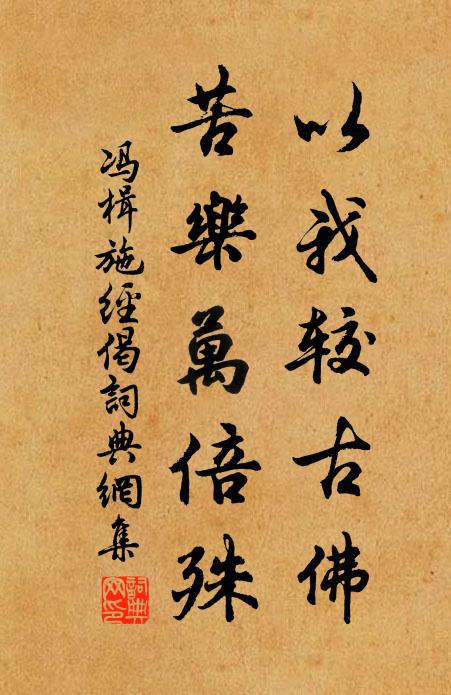 以我较古佛
苦樂萬倍殊
冯楫施經偈詞典網集
詞典网印